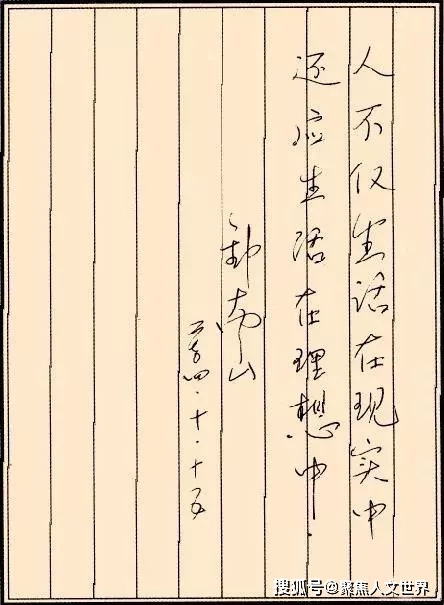 人不仅生活在现实中
还应生活在理想中.
钟南山
二〇〇四·十·十五
搜狐号@聚焦人文世界